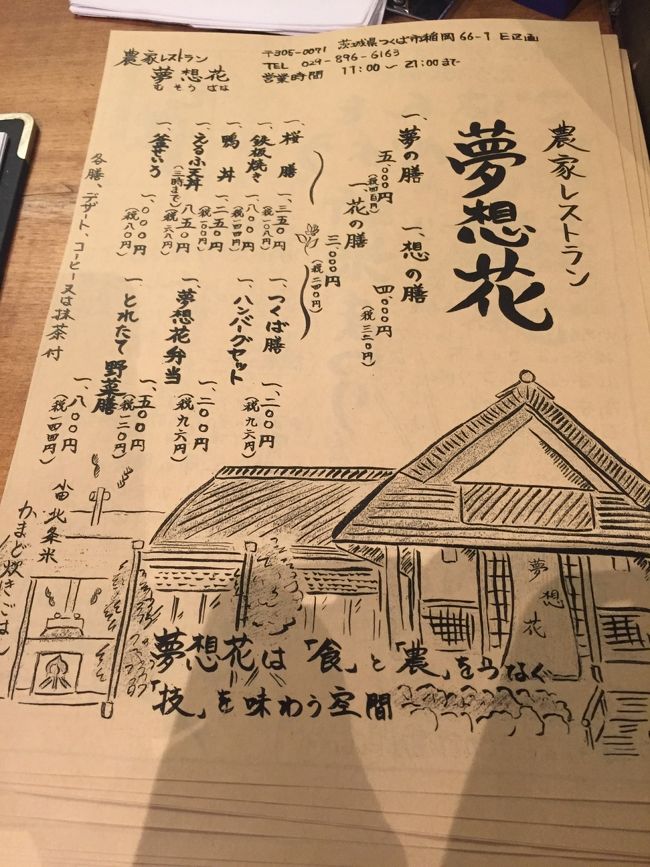 農家レストラン
夢想花
むそうばな
〒305-0071 茨城県つくば市稲岡66-1 E区画
TEL 029-896-6163
営業時間 11:00〜21:00まで
農家レストラン
夢想花
一、夢の膳
五、〇〇〇円
(税四百円)
一、想の膳
四、〇〇〇円
(税三二〇円)
一、花の膳
三、〇〇〇円
(税二四〇円)
一、桜膳
一、三五〇円
(税一〇八円)
一、鉄板焼き
一、八〇〇円
(税一四四円)
一、鴨丼
一、二五〇円
(税一〇〇円)
一、えるふ天丼
(三時まで)
八五〇円
(税六八円)
一、釜せいろ
一、〇〇〇円
(税八〇円)
一、つくば膳
一、二〇〇円
(税九六円)
一、ハンバーグセット
一、二〇〇円
(税九六円)
一、夢想花弁当
一、五〇〇円
(税一二〇円)
一、とれたて野菜膳
一、八〇〇円
(税一四四円)
各膳、デザート、コーヒー又は抹茶付
北条米
かまど炊きごはん
夢想花
夢想花は「食」と「農」をつなぐ
「技」を味わう空間